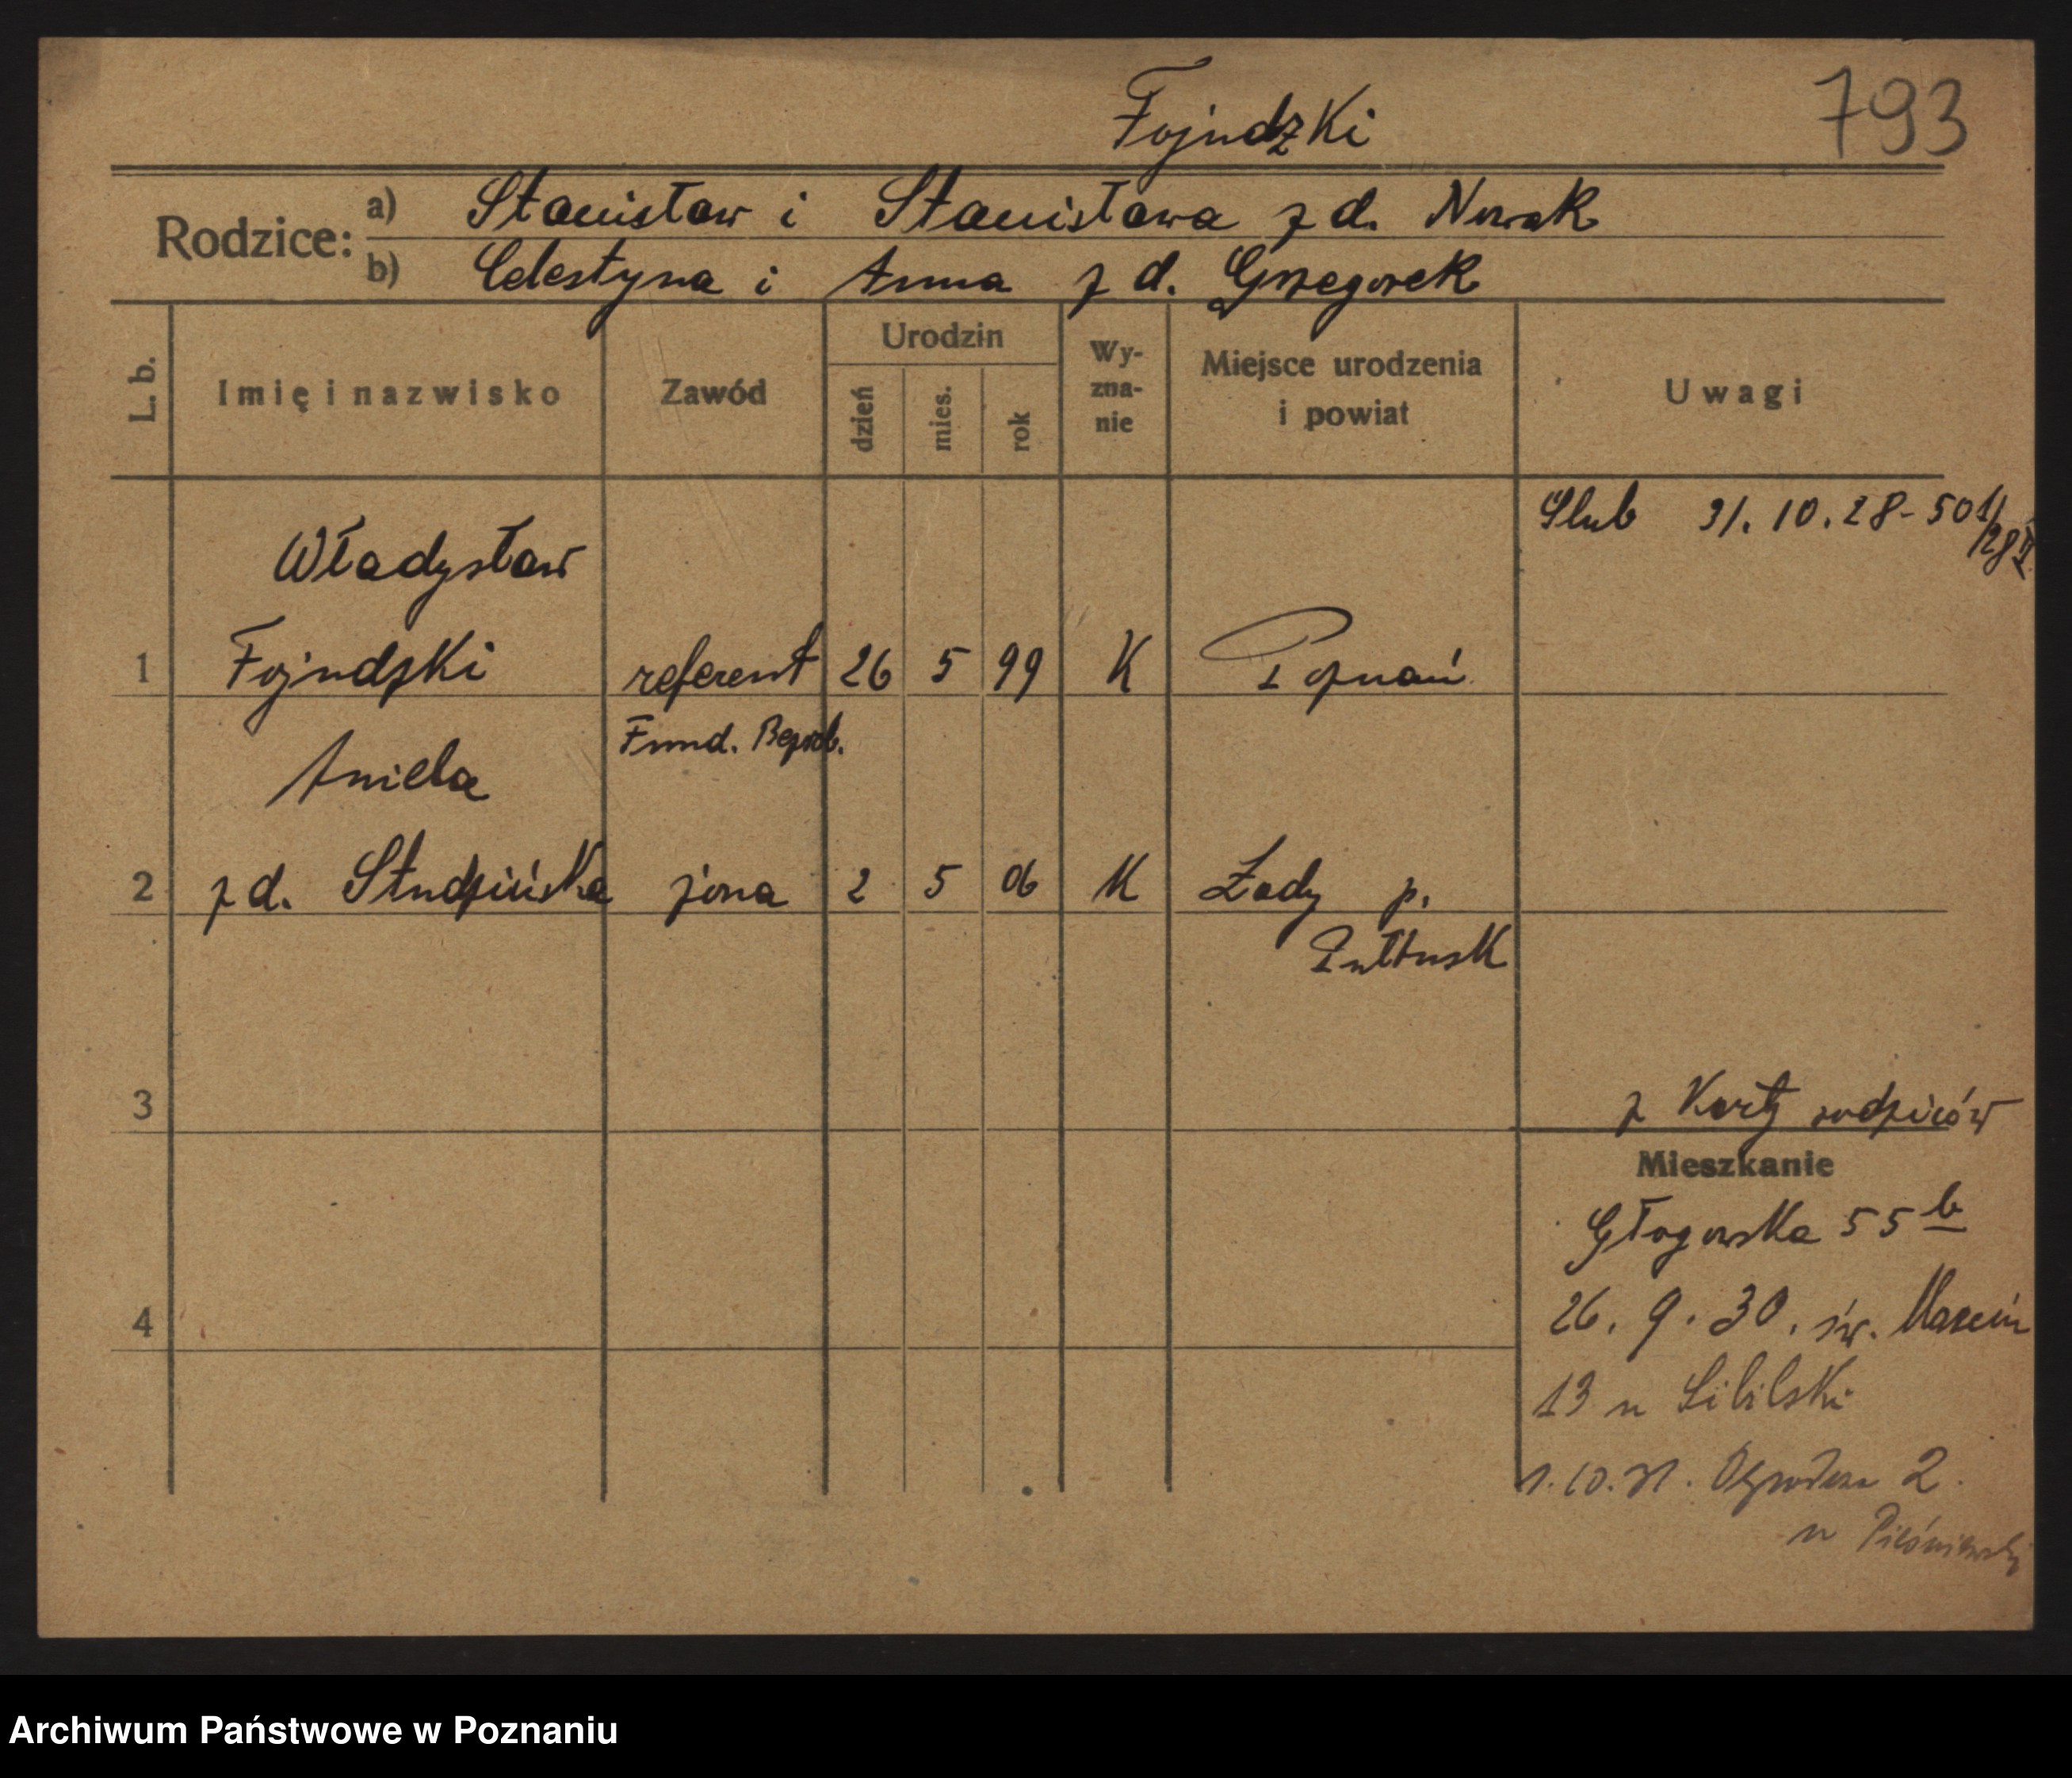 Fojudzki
793
Rodzice: a) Stanisław i Stanisława z d. Nowak
b) Celestyna i Anna z d. Grzegorek
L. b. Imię i nazwisko Zawód Urodzin dzień mies. rok Wyznanie Miejsce urodzenia i powiat Uwagi
Ślub 31.10.28 - 501/28 II
Władysław
1 Fojudzki referent 26 5 99 K Poznań
Fund. Bezrob.
Aniela
2 z d. Studzińska żona 2 5 06 K Żady p.
Pułtusk
3
z Karty rodziców
Mieszkanie
Głogowska 55 b
4
26. 9. 30. św. Marcin
13 u Sibilski
1.10.31. 2.
u
Archiwum Państwowe w Poznaniu